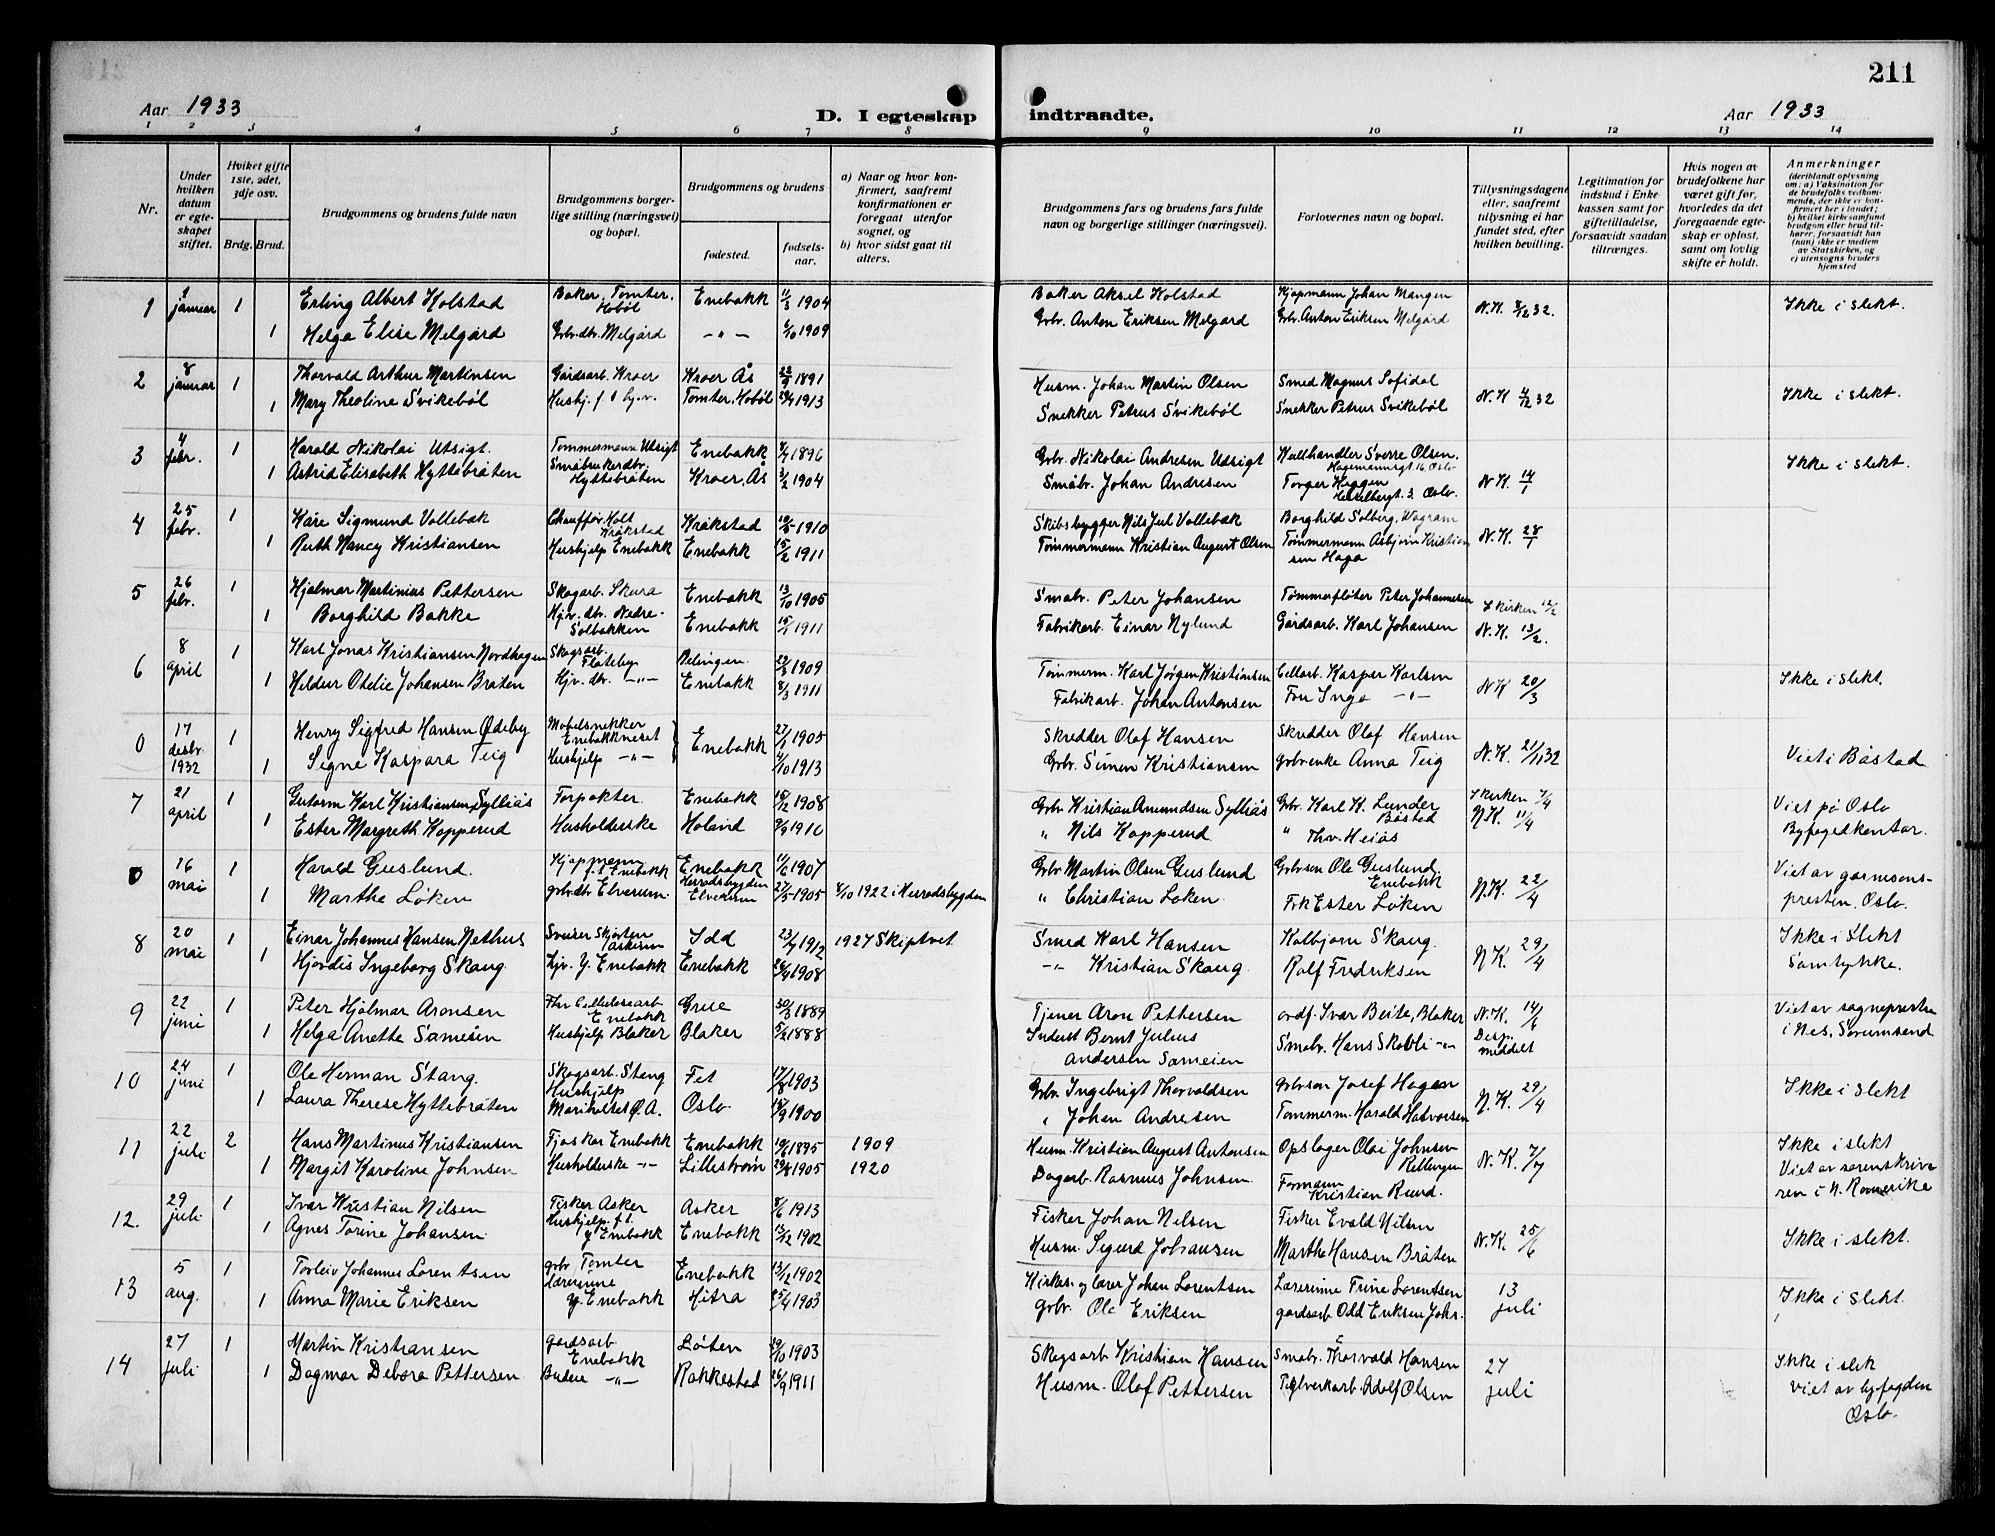 211
Aar 1933
D. I egteskap indtraadte.
Aar 1933
1 2 3 4 5 6 7 8 9 10 11 12 13 14
Nr.
Under hvilken datum er egte-skapet stiftet.
Hvilket gifte 1ste, 2det, 3dje osv.
Brdg. Brud.
Brudgommens og brudens fulde navn
Brudgommens borger-lige stilling (næringsvei) og bopæl.
Brudgommens og brudens
fødested.
fødsels-aar.
a) Naar og hvor kon-firmert, saafremt konfirmationen er foregaat utenfor sognet, og
b) hvor sidst gaat til alters.
Brudgommens fars og brudens fars fulde navn og borgerlige stillinger (næringsvei).
Forlovernes navn og bopæl.
Tillysningsdagene eller, saafremt tillysning ei har fundet sted, efter hvilken bevilling.
Legitimation for indskud i Enke kassen samt for giftetilladelse, forsaavidt saadan tiltrænges.
Hvis nogen av brudefolkene har været gift før, hvorledes da det foregaaende egte-skap er opløst, samt om lovlig skifte er holdt.
Anmerkninger (deriblandt oplysning om: a) Vaksination for de brudefolks vedkom-mende, der ikke er kon-firmert her i landet; b) hvilket kirkesamfund brudgom eller brud til-hører, forsaavidt han (hun) ikke er medlem av Statskirken, og c) utensogns bruders hjemsted
1 1 januar 1 Erling Albert Kolstad Baker, Tomter, Hobøl Enebakk 11/3 1904 Baker Aksel Kolstad Kjøpmann Johan Mangen N.K. 3/12 32. Ikke i slekt.
1 Helga Elise Melgård Grbr.dtr. Melgård -"- 6/10 1909 Grbr. Anton Eriksen Melgård Grbr. Anton Eriksen Melgård
2 8 januar 1 Thorvald Arthur Martinsen Gårdsarb. Kroer Kroer Ås 22/9 1891 Husm. Johan Martin Olsen Smed Magnus Sofidal N.K 4/12 32 Ikke i slekt.
1 Mary Theoline Svikebøl Hushj. Tomter, Hobøl 24/4 1913 Snekker Petrus Svikebøl Snekker Petrus Svikebøl
3 4 febr. 1 Harald Nikolai Utsigt. Tømmermann Utsigt Enebakk 4/4 1896 Grbr. Nikolai Andresen Udsigt Kullhandler Sverre Olsen, Hagemannsgt 16 Oslo N.K. 14/1 Ikke i slekt.
1 Astrid Elisabeth Hyttebråten Småbrukerdtr. Hyttebråten Kroer, Ås 3/2 1904 Småbr. Johan Andresen Torger Heggen Hesselbergt. 3 Oslo.
4 25 febr. 1 Kåre Sigmund Vollebæk Chauffør, Holt Kråkstad Kråkstad 10/5 1910 Skibsbygger Nils Jul Vollebæk Borghild Solberg, Wagram N.K. 28/1
1 Ruth Nancy Kristiansen Hushjelp Enebakk Enebakk 15/2 1911 Tømmermann Kristian August Olsen Tømmermann Asbjørn Kristiansen Haga
5 26 febr. 1 Hjalmar Martinius Pettersen Skogarb. Skura Enebakk 13/10 1905 Småbr. Peter Johansen Tømmerfløter Peter Johannesen I kirken 12/2
1 Borghild Bakke Hjv. dtr. Nedre-Solbakken Enebakk 15/1 1911 Fabrikarb. Einar Nylund Gårdsarb. Karl Johansen N.K. 13/2.
6 8 april 1 Karl Jonas Kristiansen Nordhagen Skogsarb. Flateby 23/3 1909 Tømmerm. Karl Jørgen Kristiansen Kasper Karlsen N K 20/3 Ikke i slekt.
1 Hildur Otelie Johansen Bråten Hjv. dtr. -"- Enebakk 8/3 1911 Fabrikarb. Johan Antonsen Fru Inga -"-
0 17 desbr. 1932 1 Henry Sigfred Hansen Ødeby Møbelsnekker Enebakkneset Enebakk 27/1 1905 Skredder Olaf Hansen Skredder Olaf Hansen N.K. 21/11 32 Viet i Båstad
1 Signe Kaspara Teig Hushjelp -"- 4/10 1913 Grbr. Simen Kristiansen grbr.enke Anna Teig
7 21 april 1 Gutorm Karl Kristiansen Sylliås Forpakter. Enebakk 15/12 1908 Grbr. Kristian Amundsen Sylliås Grbr. Karl K. Lunder Båstad I kirken 7/4 Viet på Oslo
1 Ester Margreth Kopperud Husholderske Høland 9/9 1910 " Nils Kopperud " Thv. Heiås N.K. 11/4 Byfogedkontor.
0 16 mai 1 Harald Guslund. Kjøpmann f. i Enebakk Enebakk 11/6 1907 Grbr. Martin Olsen Guslund Grbrsøn Ole Guslund, Enebakk N.K. 22/4 Viet av garnisons-
1 Marthe Løken grbr.dtr. Elverum. Herredsbygden Elverum 27/5 1905 8/10 1922 i Herredsbygden " Christian Løken Frk Ester Løken presten. Oslo.
8 20 mai 1 Einar Johannes Hansen Nethus Sveiser Skjørten Askim Idd 23/7 1912 1927 Skiptvet Smed Karl Hansen Kolbjørn Skaug. N K. 29/4 Ikke i Slekt
1 Hjørdis Ingeborg Skaug. hjv. Y. Enebakk Enebakk 26/4 1908 -"- Kristian Skaug. Rolf Fredriksen Samtykke.
9 22 juni 1 Peter Hjalmar Aronsen Enebakk Grue 30/3 1889 Tjener Aron Pettersen ordf. Ivar Beite, Blaker N.K. 14/6 Viet av sognepresten
1 Helga Anette Sameien Hushjelp Blaker Blaker 5/2 1888 Inderst Bernt Julius Andersen Sameien Småbr. Hans Skobli -"- Disp. meddelt i Nes, Sørumsand
10 24 juni 1 Ole Herman Stang. Skogsarb. Stang Fet 17/8 1903 Grbr. Ingebrigt Thorvaldsen Grbrsøn Josef Hagen N.K. 29/4 Ikke i Slekt
1 Laura Therese Hyttebråten Hushjelp Mariholtet Ø.A. Oslo. 18/9 1900 " Johan Andresen Tømmerm. Harald Halvorsen
11 22 juli 2 Hans Martinus Kristiansen Fjøskar Enebakk Enebakk 19/6 1895 1909 Husm. Kristian August Antonsen Opslager Olai Johnsen Rellingen N.K. 7/7 Ikke i slekt
1 Margit Karoline Johnsen Husholderske -"- Lillestrøm 29/8 1905 1920 Dagarb. Rasmus Johnsen. Formann Kristian Ruud. Viet av sorenskriveren i N. Romerike
12. 29 juli 1 Ivar Kristian Nilsen Fisker Asker Asker 8/6 1913 Fisker Johan Nilsen Fisker Evald Nilsen N.K. 25/6 Ikke i slekt.
1 Agnes Torine Johansen Hushjelp f.i. Y Enebakk Enebakk 13/12 1902 Husm. Sigurd Johansen Marthe Hansen Bråten
13 5 aug. 1 Torleiv Johannes Lorentsen grbr Tomter Enebakk 13/12 1902 Kirkes. og lærer Johan Lorentsen Lærerinne Trine Lorentsen 13 juli Ikke i slekt.
1 Anna Marie Eriksen Lærerinne Y. Enebakk Hitra 25/4 1903 Grbr. Ole Eriksen gårdsarb. Odd Eriksen Johs.
14 27 juli 1 Martin Kristiansen gårdsarb Enebakk Løten 29/10 1903 Skogsarb Kristian Hansen Småbr. Thorvald Hansen 27 juli Ikke i slek
1 Dagmar Debora Pettersen Budeie -"- Rakkestad 26/9 1911 Husm. Olaf Pettersen Teglverkarb. Adolf Olsen Viet av byfogden Oslo.